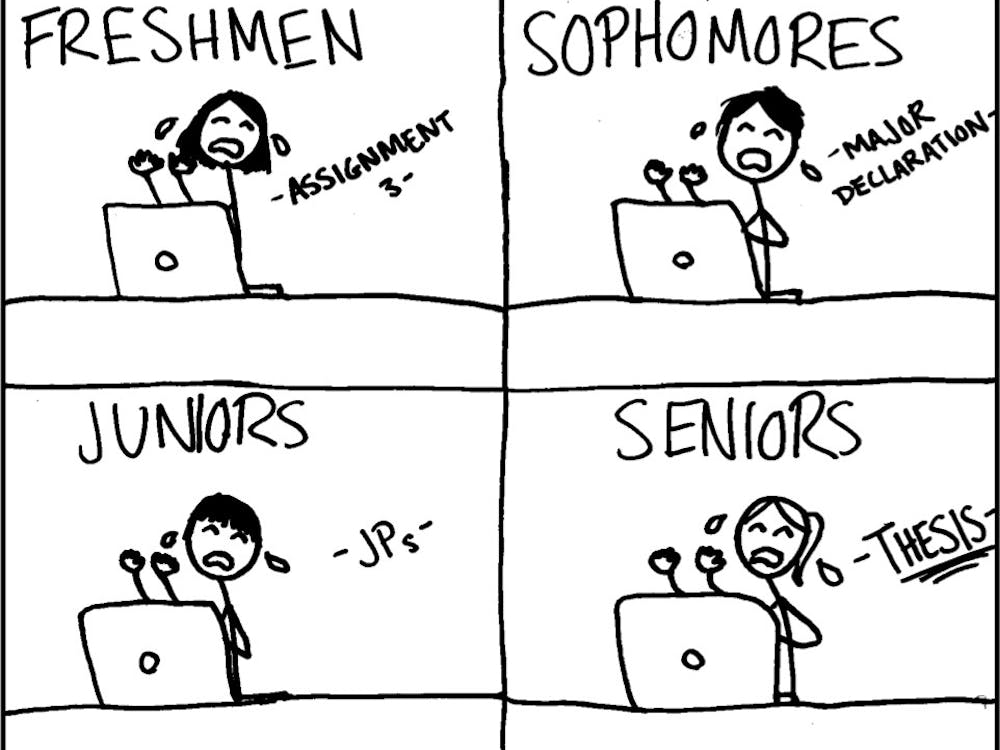 FRESHMEN
-ASSIGNMENT
3-
SOPHOMORES
-MAJOR
DECLARATION-
JUNIORS
-JPs-
SENIORS
-THESIS-